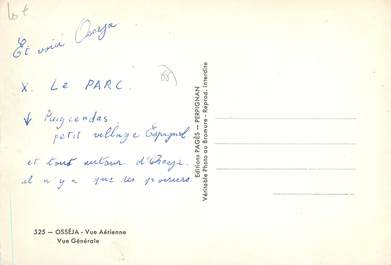 Lot
Et voici Osseja
X. Le PARC.
↓ Puigcerdas
petit village Espagnol
et tout autour d'Osseja.
il n y a que des
66
Editions PAGÈS — PERPIGNAN
Véritable Photo au Bromure - Reprod. Interdite
525 — OSSÉJA - Vue Aérienne
Vue Générale